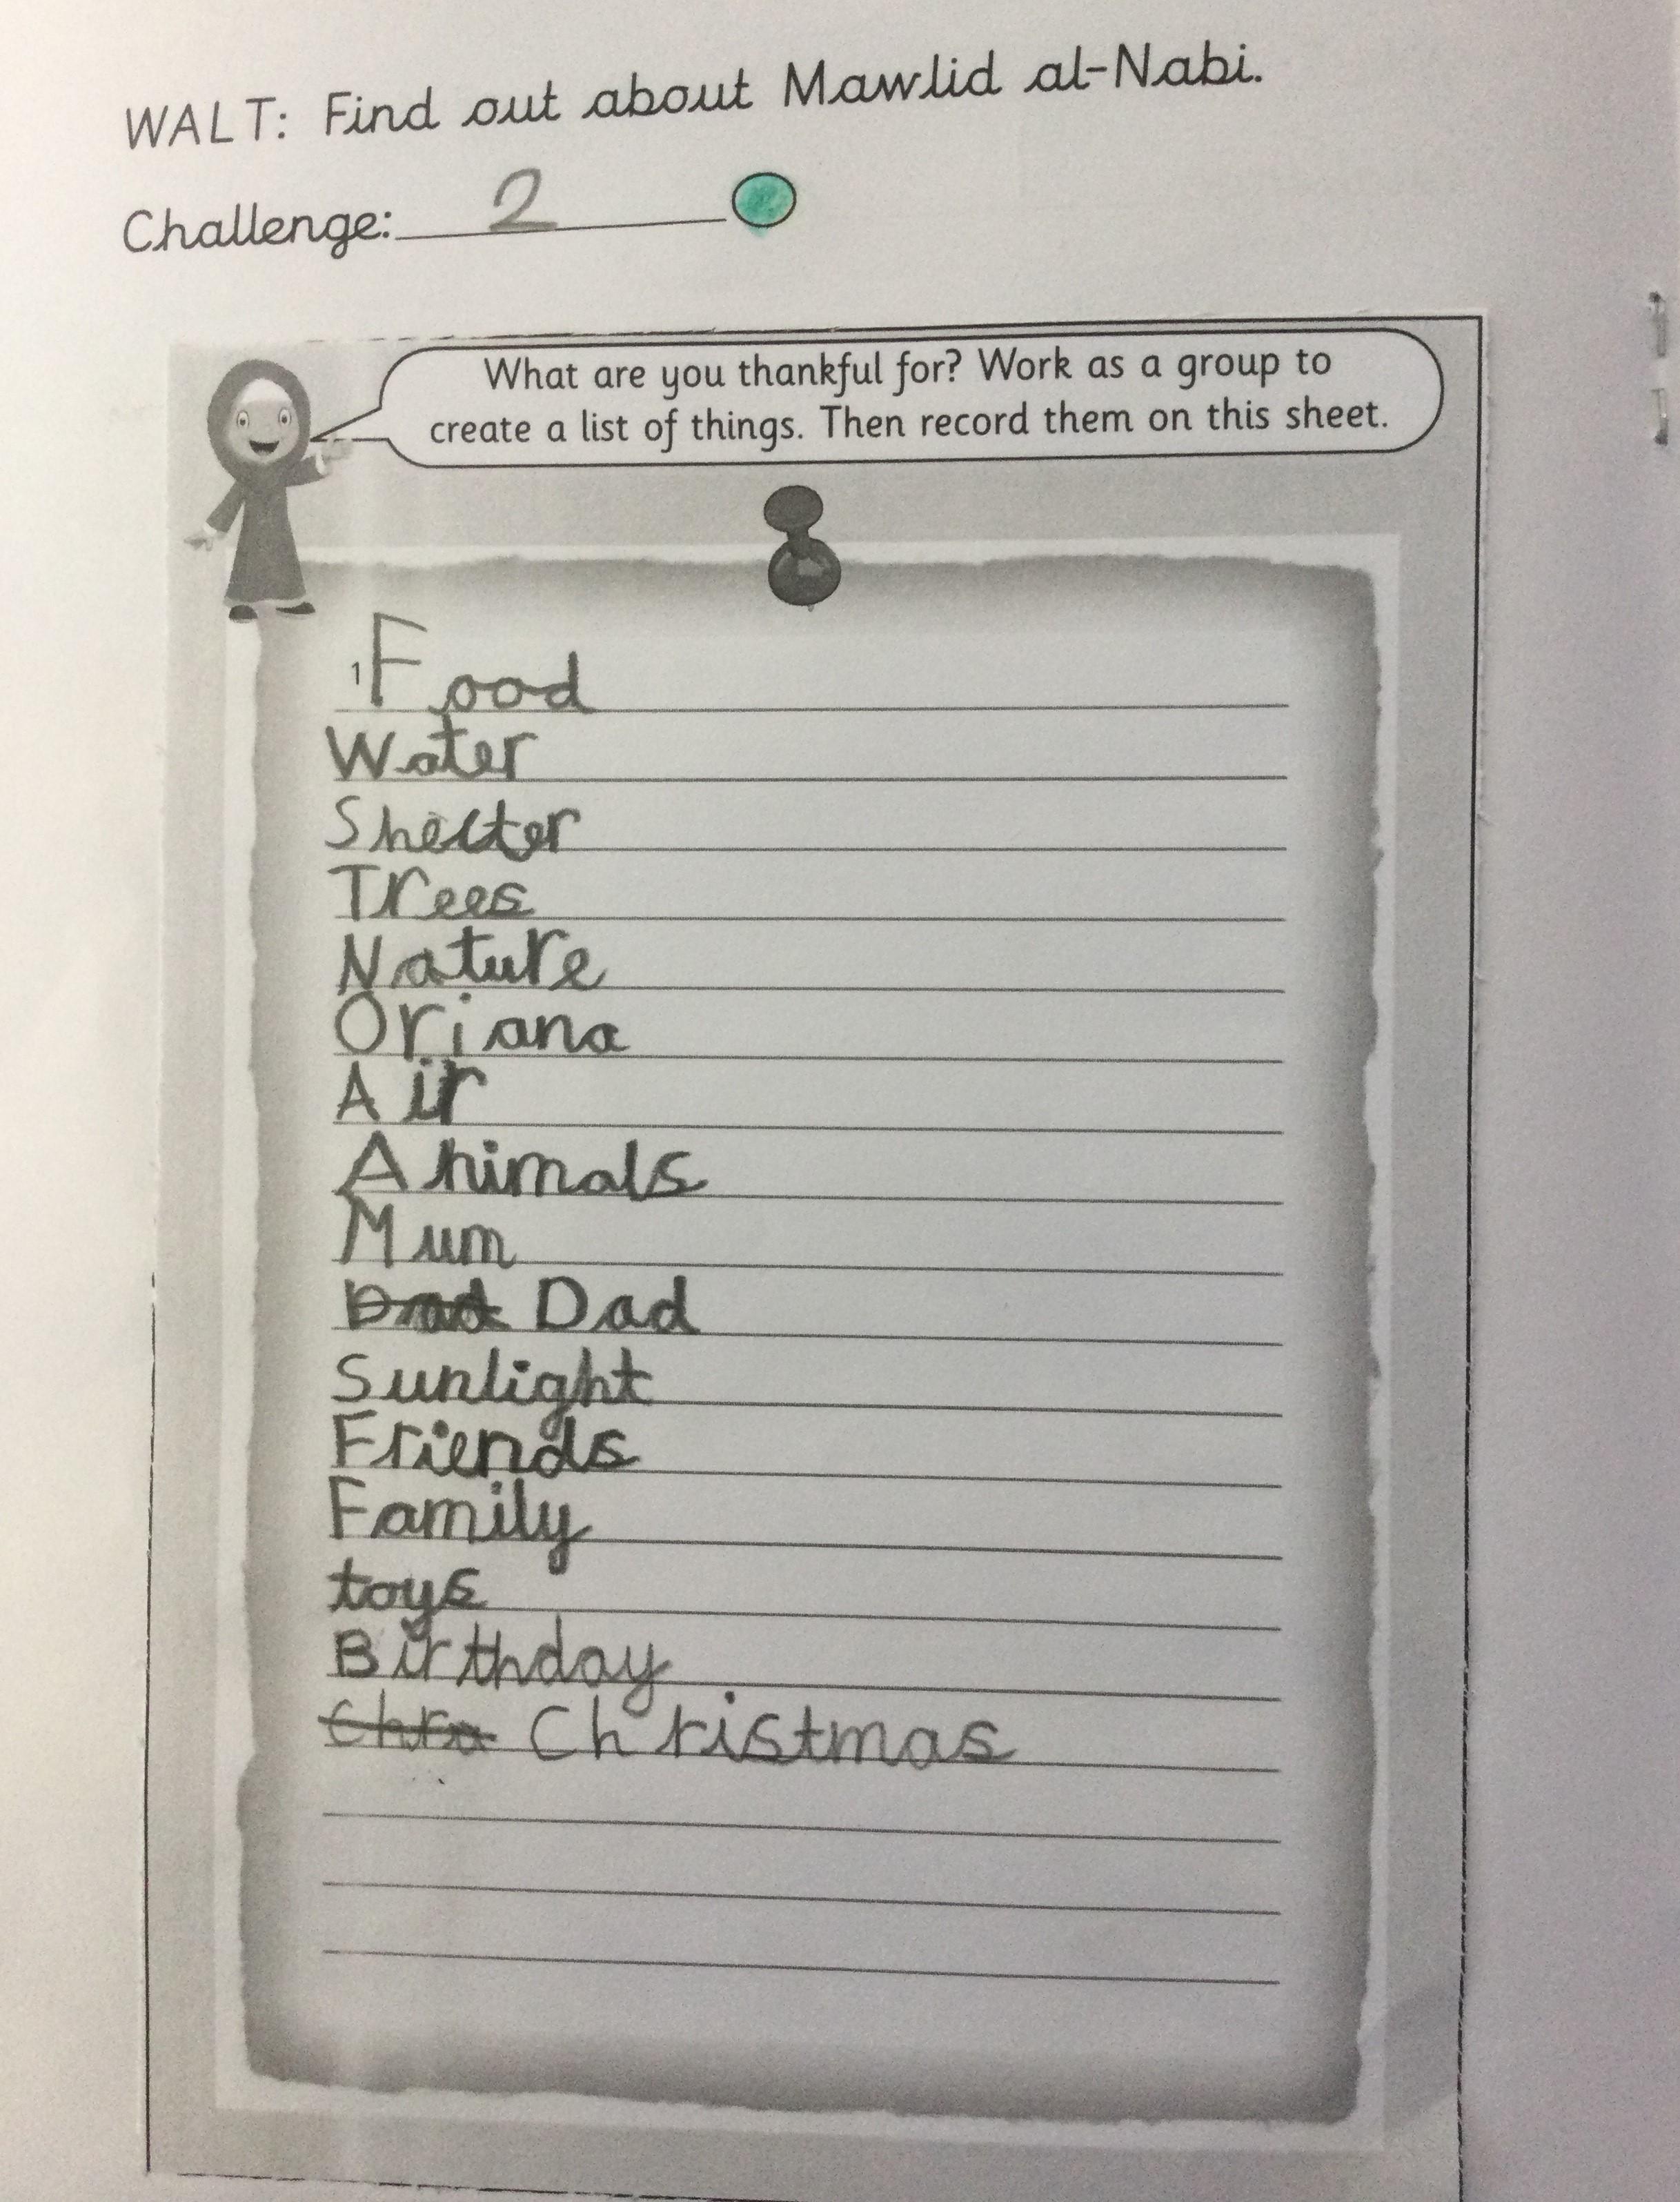 WALT: Find out about Mawlid al-Nabi.
Challenge: 2
What are you thankful for? Work as a group to
create a list of things. Then record them on this sheet.
1 Food
Water
Shelter
Trees
Nature
Oriana
Air
Animals
Mum
Dad
Sunlight
Friends
Family
toys
Birthday
Christmas